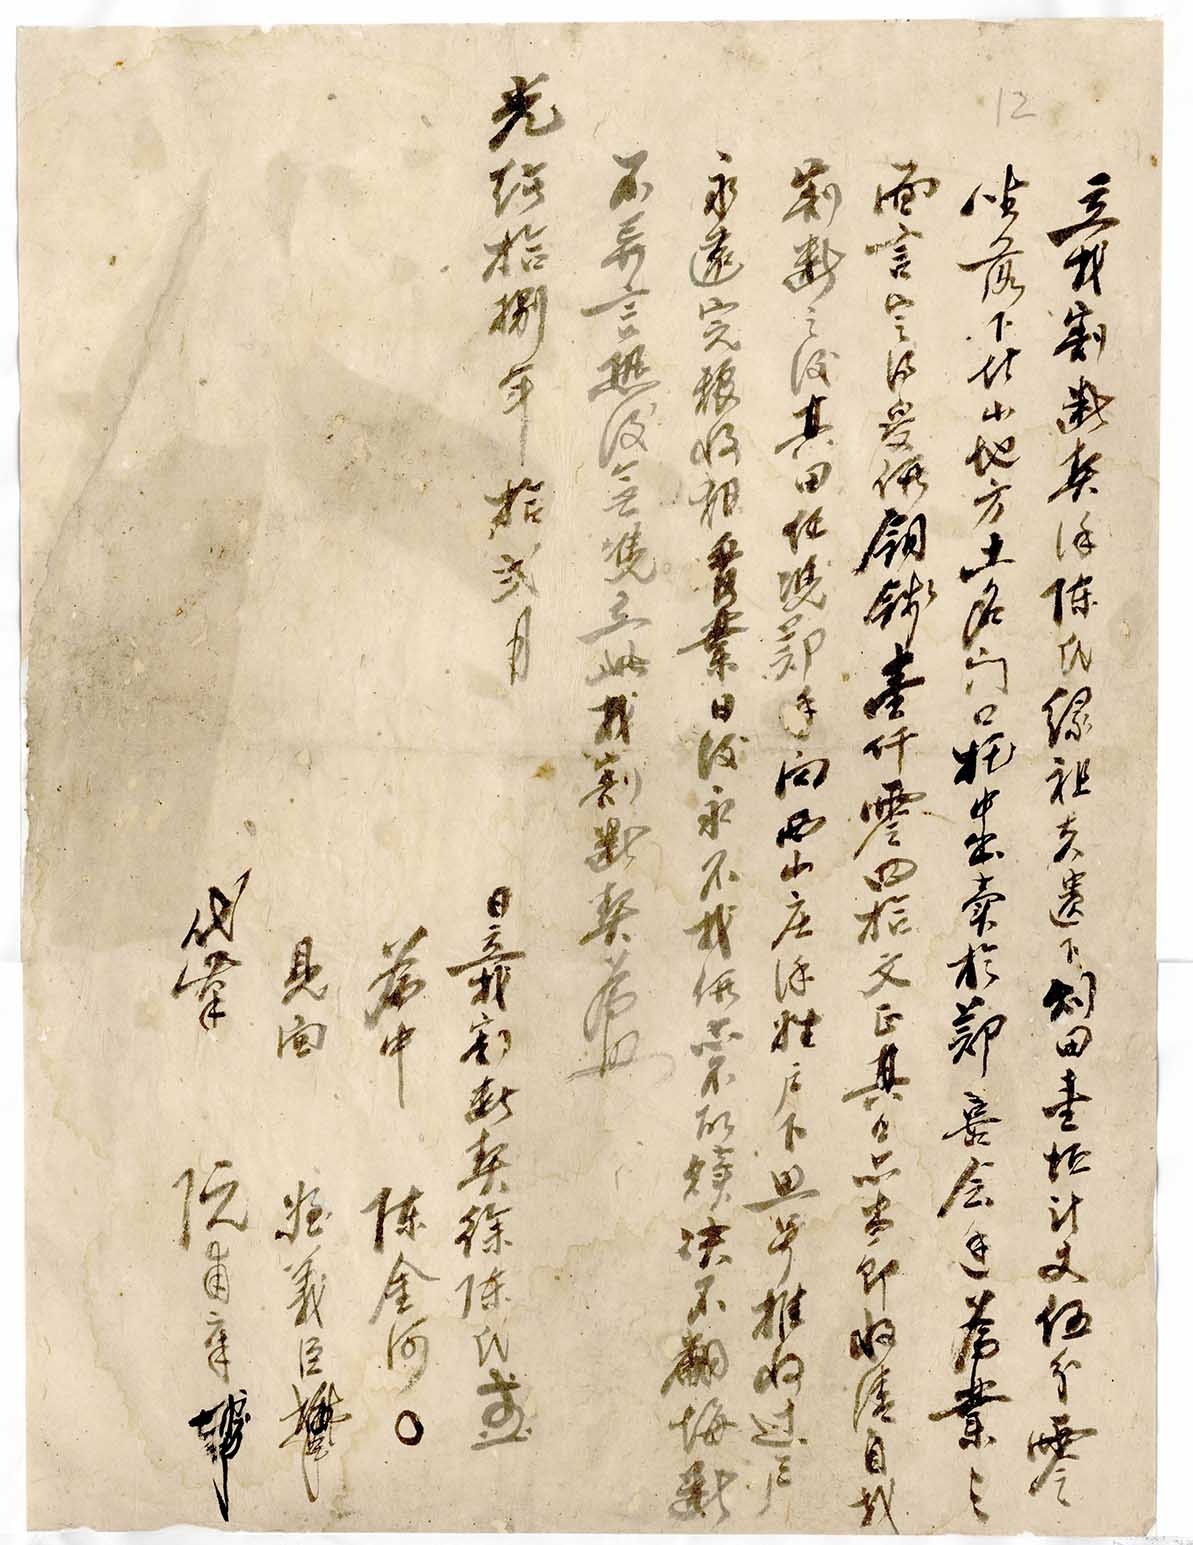 12
立找割断契徐陈氏缘祖夫遗下制田壹坵计丈伍分零
坐落下廿山地方土名门口托中出卖於郑 会手 为业三
面言定得受价铜钱壹仟零四拾文正其日亦当即收清自找
割断之後其田任凭郑手向西山庄徐姓户下 推收过户
永远完粮收租管业日後永不找价亦不取赎决不翻悔断
不异言恐後无凭立此找割断契为照
光绪拾捌年拾弍月
日立找割断契徐陈氏
为中 陈金河
见面 义臣
代笔 阮 章